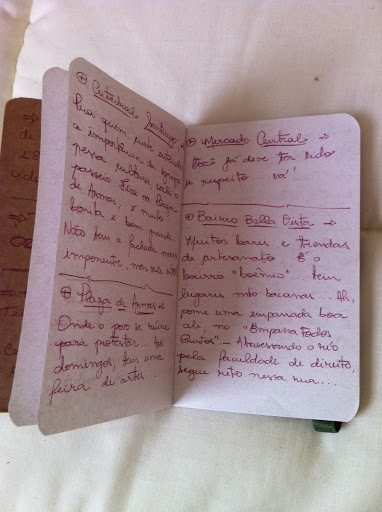 ⊕ Catedral Santiago
Pra quem quer entender
a importância da igreja
nessa cultura, vale o
passeio. Fica na Plaza
de Armas, é muito
bonita e bem grande.
Não tem a fachada mais
imponente, mas vale
⊕ Plaza de Armas
Onde o povo se reúne
para protestar... Aos
domingos, tem uma
feira de artes...
⊕ Mercado Central →
Você já deve ter lido
a respeito. Vá!!
⊕ Bairro Bella Vista →
Muitos bares e tiendas
de artesanato. É o
bairro "boêmio". Tem
lugares mto bacanas... Ah,
come uma empanada boa
ali, no "Empanatodos
" - Atravessando o rio
pela faculdade de direito,
segue reto nessa rua...
→
de
→